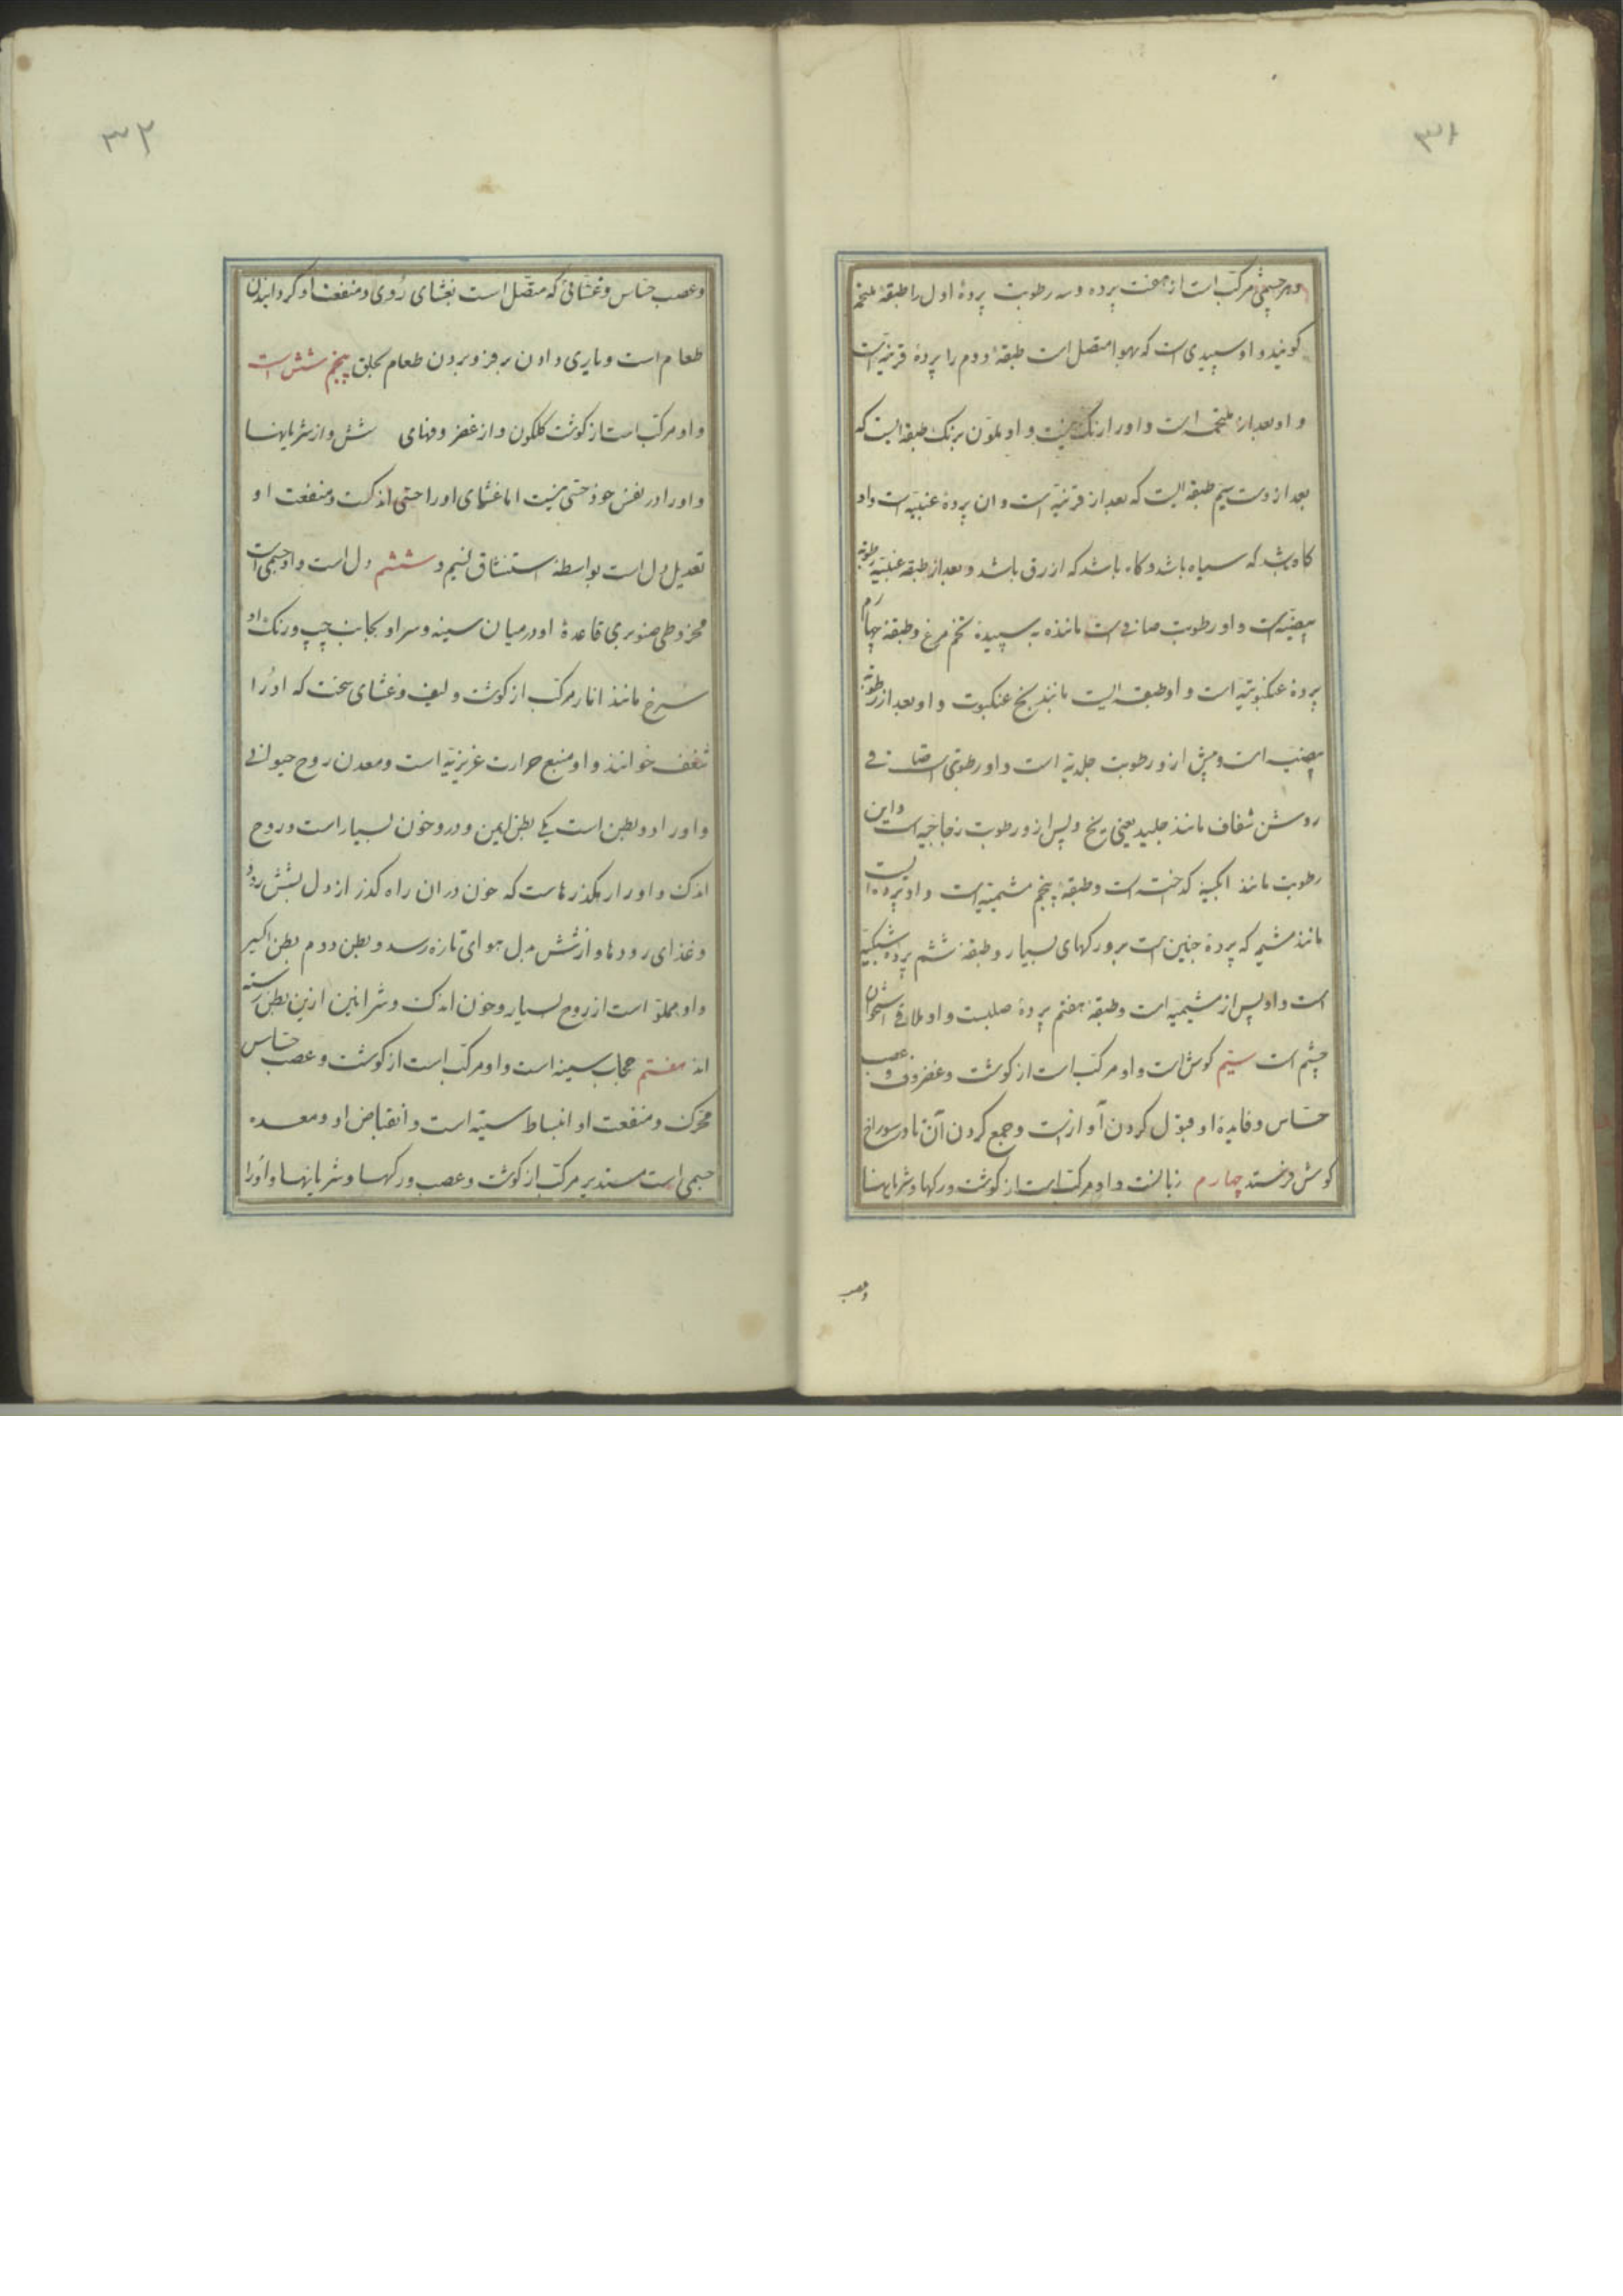 ۳۱
و هر چشمی مرکب است از هفت پرده و سه رطوبت پردهٔ اول را طبقهٔ ملتحمه
کویند و او سپیدی است که بهوا متصل است طبقهٔ دوم را پردهٔ قرنیه است
و او بعد از ملتحمه است و او را رنک نیست و او ملون برنک طبقه ایست که
بعد ازوست سیم طبقه ایست که بعد از قرنیه است و ان پردهٔ عنبیه است و او
کاه باشد که سیاه باشد و کاه باشد که ازرق باشد و بعد از طبقهٔ عنبیه رطوبة
بیضیه است و او رطوبت صافی است ماننده به سپیدهٔ تخم مرغ و طبقهٔ چهارم
پردهٔ عنکبوتیه است و او طبقه ایست مانند نخ عنکبوت و او بعد از رطوبة
بیضیه است و پیش ازو رطوبت جلدیه است و او رطوبتی است صافی
روشن شفاف مانند جلید یعنی یخ و پس ازو رطوبت زجاجیه است و این
رطوبت مانند ابکینهٔ کداخته است و طبقهٔ پنجم مشیمیه است و او پرده ایست
مانند مشیمه که پردهٔ جنین است برو رکهای بسیار و طبقهٔ ششم پردهٔ شبکیه
است و او پس از مشیمیه است و طبقهٔ هفتم پردهٔ صلبست و او ملاقی استخوان
چشم است سیم کوش است و او مرکب است از کوشت و غضروف و عصب
حساس و فایدهٔ او قبول کردن آوازست و جمع کردن آن تا در سوراخ
کوش فرستد چهارم زبانست و او مرکب است از کوشت و رکها و شریانها
وعصب
۳۲
و عصب حساس و غشائی که متصل است بغشای رُوی و منفعت او کردانیدن
طعام است و یاری دادن بر فرو بردن طعام بحلق پنجم شش است
و او مرکب است از کوشت کلکون و از غضروفهای شش و از شریانها
و او را در نفس خوذ حتی نیست اما غشای او را حتی اندکست و منفعت او
تعدیل دل است بواسطهٔ استنشاق نسیم و ششم دل است و او جسمی است
مخروطی صنوبری قاعدهٔ او در میان سینه و سر او بجانب چپ و رنک او
سُرخ مانند انار مرکب از کوشت و لیف و غشای سخت که او را
شغف خوانند و او منبع حرارت غریزیه است و معدن روح حیوانی
و او را دو بطن است یکی بطن ایمن و درو خون بسیار است و روح
اندک و او را رهکذرهاست که خون در ان راه کذر از دل بشش رود
و غذای رودها و از شش بدل هوای تازه رسد و بطن دوم بطن ایسر
و او مملوّ است از روح بسیار و خون اندک و شرائین ازین بطن رسته
اند هفتم حجاب سینه است و او مرکب است از کوشت و عصب حساس
محرک و منفعت او انبساط سینه است و انقباض او و معده
جسمی است مستدیر مرکب از کوشت و عصب و رکها و شریانها و او را